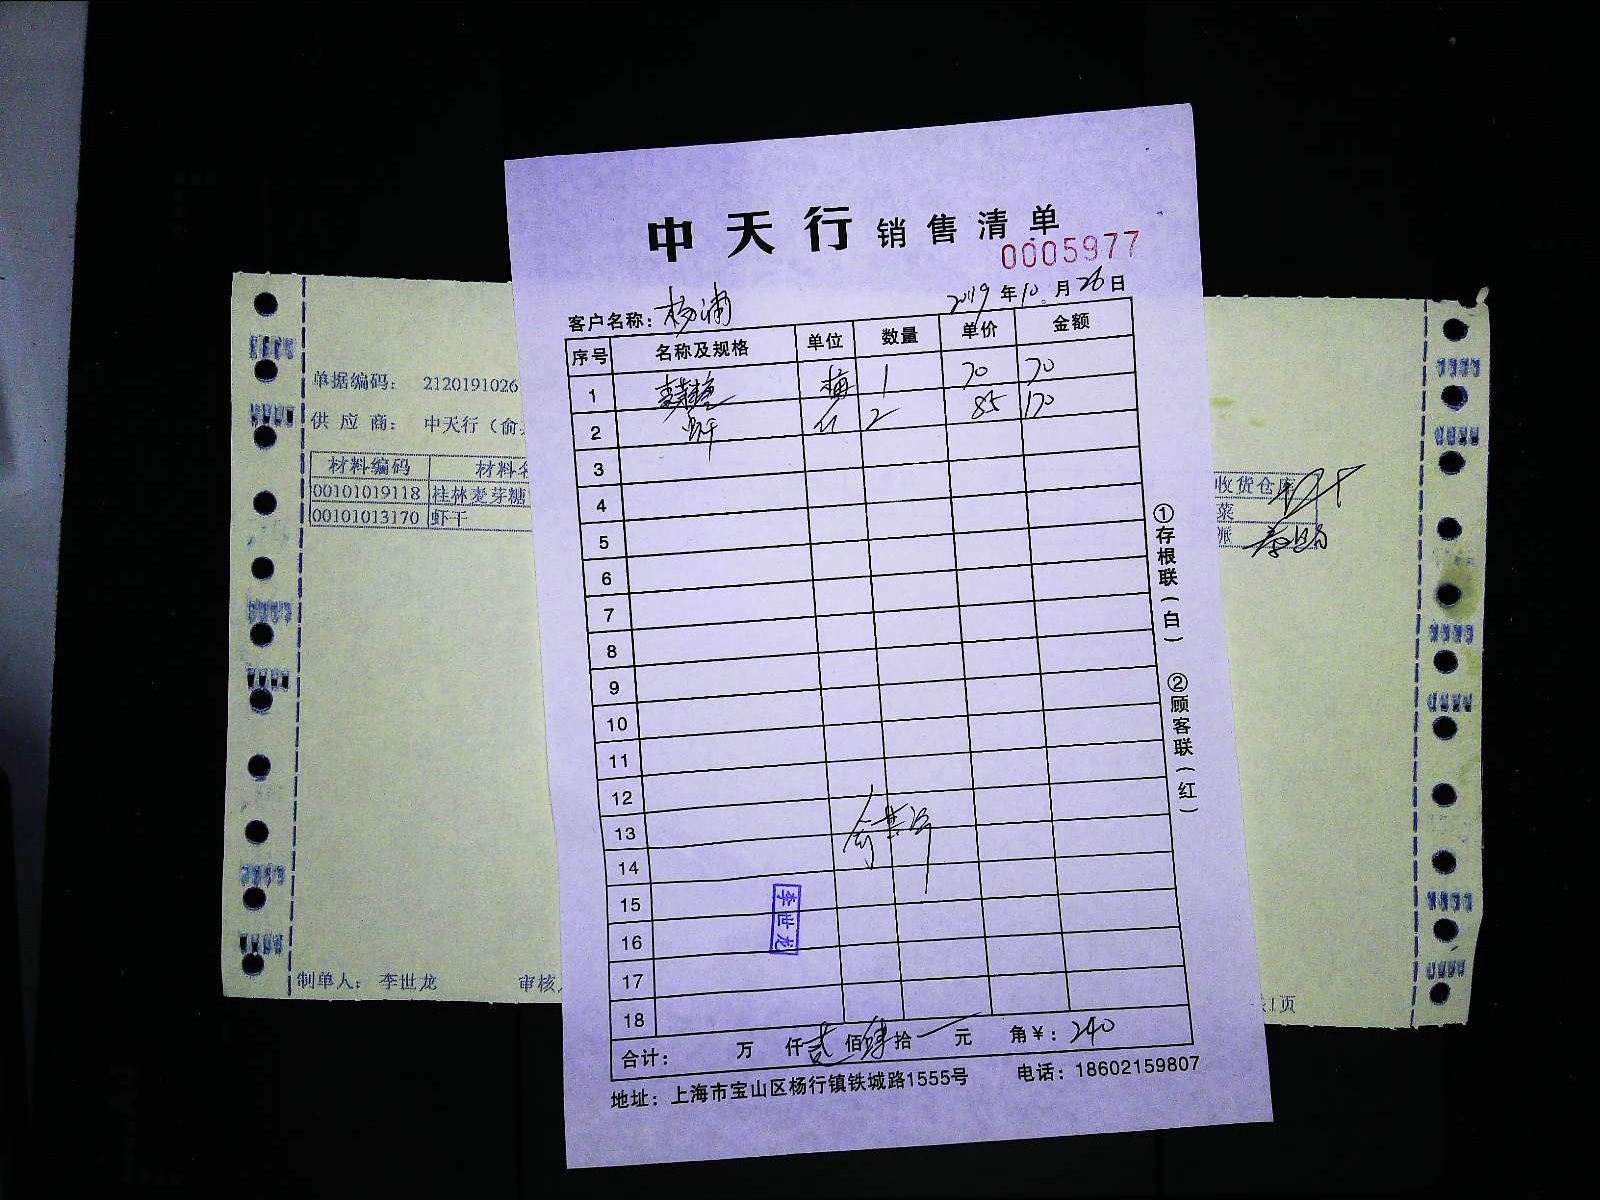 中天行销售清单
0005977
客户名称：杨浦 2019年10月26日
序号 名称及规格 单位 数量 单价 金额
1 桶 1 70 70
2 虾干 斤 2 85 170
3
4
5
6
7
8
9
10
11
12
13
14
15
16
17
18
李世龙
合计： 万 仟贰佰肆拾 元 角￥：240
地址：上海市宝山区杨行镇铁城路1555号 电话：18602159807
①存根联（白） ②顾客联（红）
单据编码： 2120191026
供应商： 中天行（俞
材料编码 材料名 收货仓库
00101019118 桂林麦芽糖 菜
00101013170 虾干 派
制单人： 李世龙 审核 1页